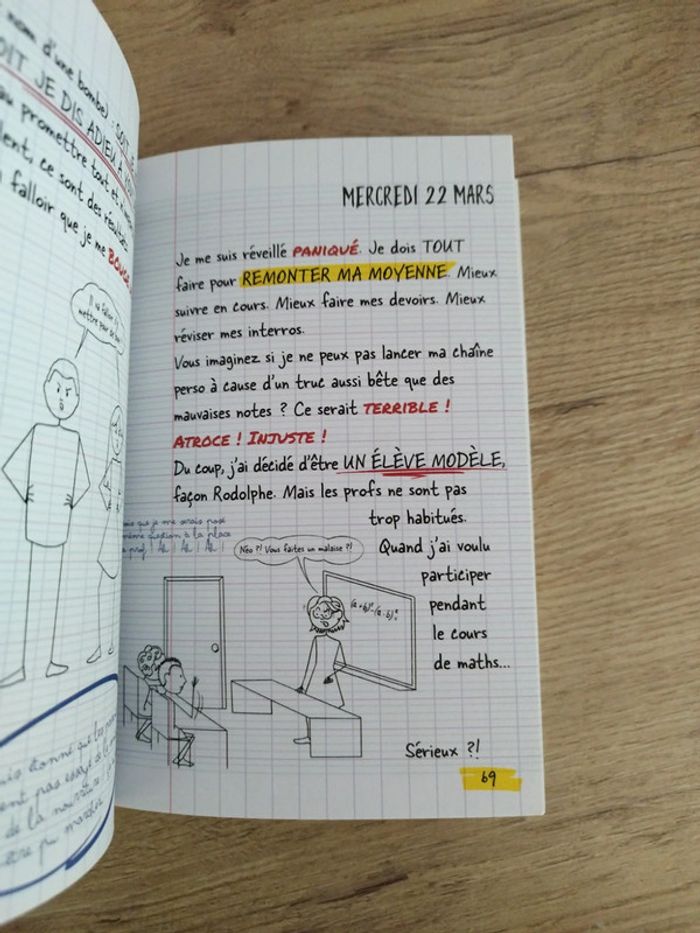 nom d'une bombe) : SOIT
SOIT JE DIS ADIEU À
promettre tout et
ce sont des résultats
falloir que je me BOUGE
Il va falloir
mettre
MERCREDI 22 MARS
Je me suis réveillé PANIQUÉ. Je dois TOUT
faire pour REMONTER MA MOYENNE. Mieux
suivre en cours. Mieux faire mes devoirs. Mieux
réviser mes interros.
Vous imaginez si je ne peux pas lancer ma chaîne
perso à cause d'un truc aussi bête que des
mauvaises notes ? Ce serait TERRIBLE !
ATROCE ! INJUSTE !
Du coup, j'ai décidé d'être UN ÉLÈVE MODÈLE,
façon Rodolphe. Mais les profs ne sont pas
trop habitués.
Quand j'ai voulu
participer
pendant
le cours
de maths...
que je me serais posé
même question à la place
prof ! Ah ! Ah ! Ah !
Néo ?! Vous faites un malaise ?!
(a+b)²-(a-b)²
Sérieux ?!
69
étonné que les
pas essayé
de la nourriture
pu marcher